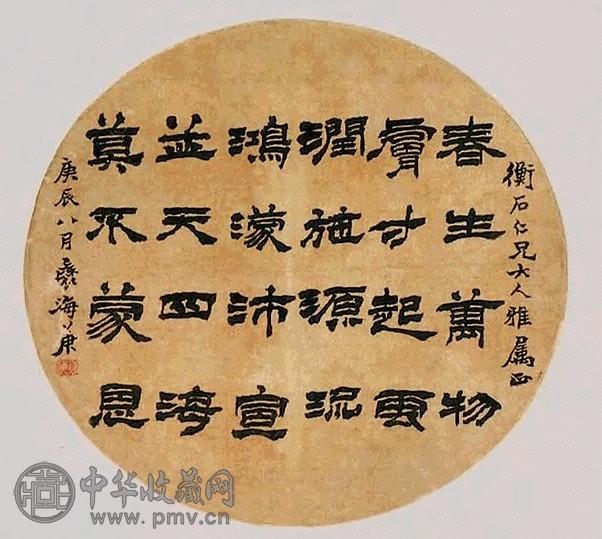 衡石仁兄大人雅属正
春生萬物
膚寸起雲
潤施源流
鴻濛沛宣
並天四海
莫不蒙恩
庚辰八月海康
中华收藏网
www.pmv.cn